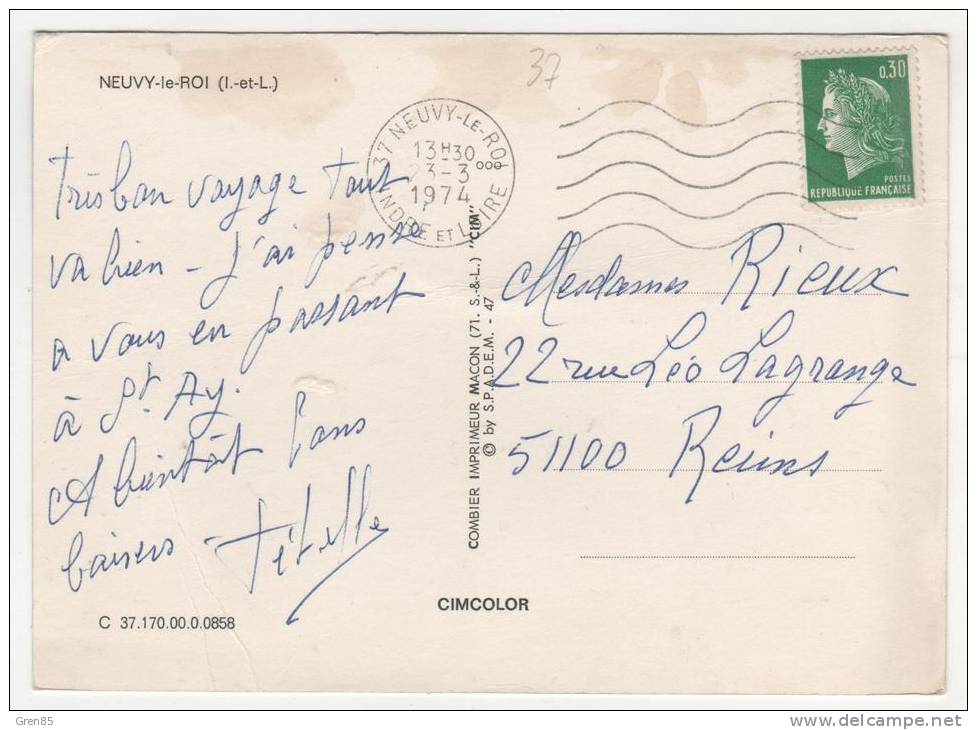 NEUVY-le-ROI (I.-et-L.)
37
37 NEUVY-LE-ROI
13H30
23-3
1974
INDRE ET LOIRE
0.30
POSTES
REPUBLIQUE FRANÇAISE
Très bon voyage tout
va bien - J'ai pensé
a vous en passant
à St. Ay.
A bientôt bons
baisers -
Mesdames Rieux
22 rue Léo Lagrange
51100 Reims
COMBIER IMPRIMEUR MACON (71. S.-&-L.) "CIM"
© by S.P.A.D.E.M. - 47
CIMCOLOR
C 37.170.00.0.0858
Gren85
delcampe.net